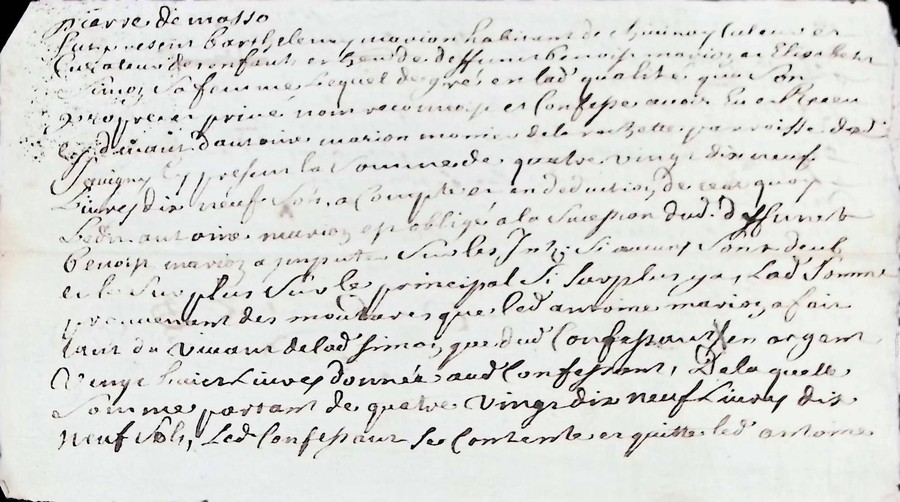 pierre de masso
fut present Barthelemy marion habitant de tuteur et
Curateur des enfants et de deffunt benoist marion et Elisabeth
Simon sa femme Lequel de gré en lad. qualité que Son
propre et privé nom reconnoist et Confesse avoir Eu et Receu
cy devant d'antoine marion monier de la parroisse de
Savigny Cy present la Somme de quatre vingt dix neuf
Livres dix neuf Sols a Compte et en deduction de ce en quoy
Ledit antoine marion est obligé a la Sucession dud. deffunt
benoist marion a imputer Sur les Int. Si aucuns sont deub
et le Surplus Sur le principal Si Surplus ya, Lad. Somme
provenant des moutures que led. antoine marion a fait
tant du vivant de lad. Simon, que dud. Confessant en argent
Vingt huict Livres donnée aud. Confessant, De la quelle
Somme portant de quatre vingt dix neuf Livres dix
neuf Sols, Led. Confessant Se Contente et quitte led. antoine